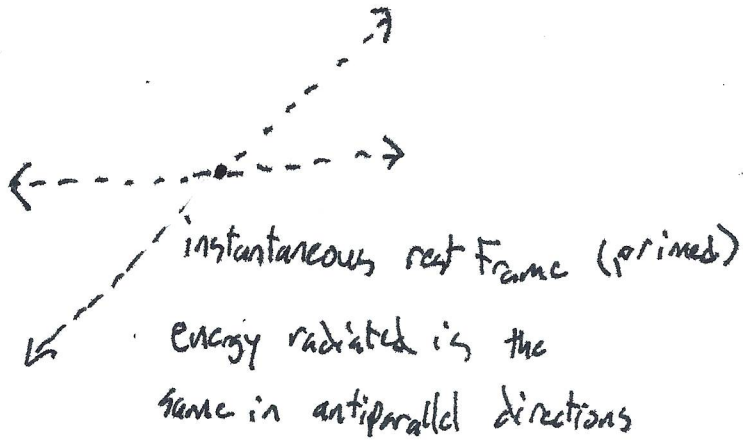 instantaneous rest Frame (primed)
energy radiated is the
same in antiparallel directions